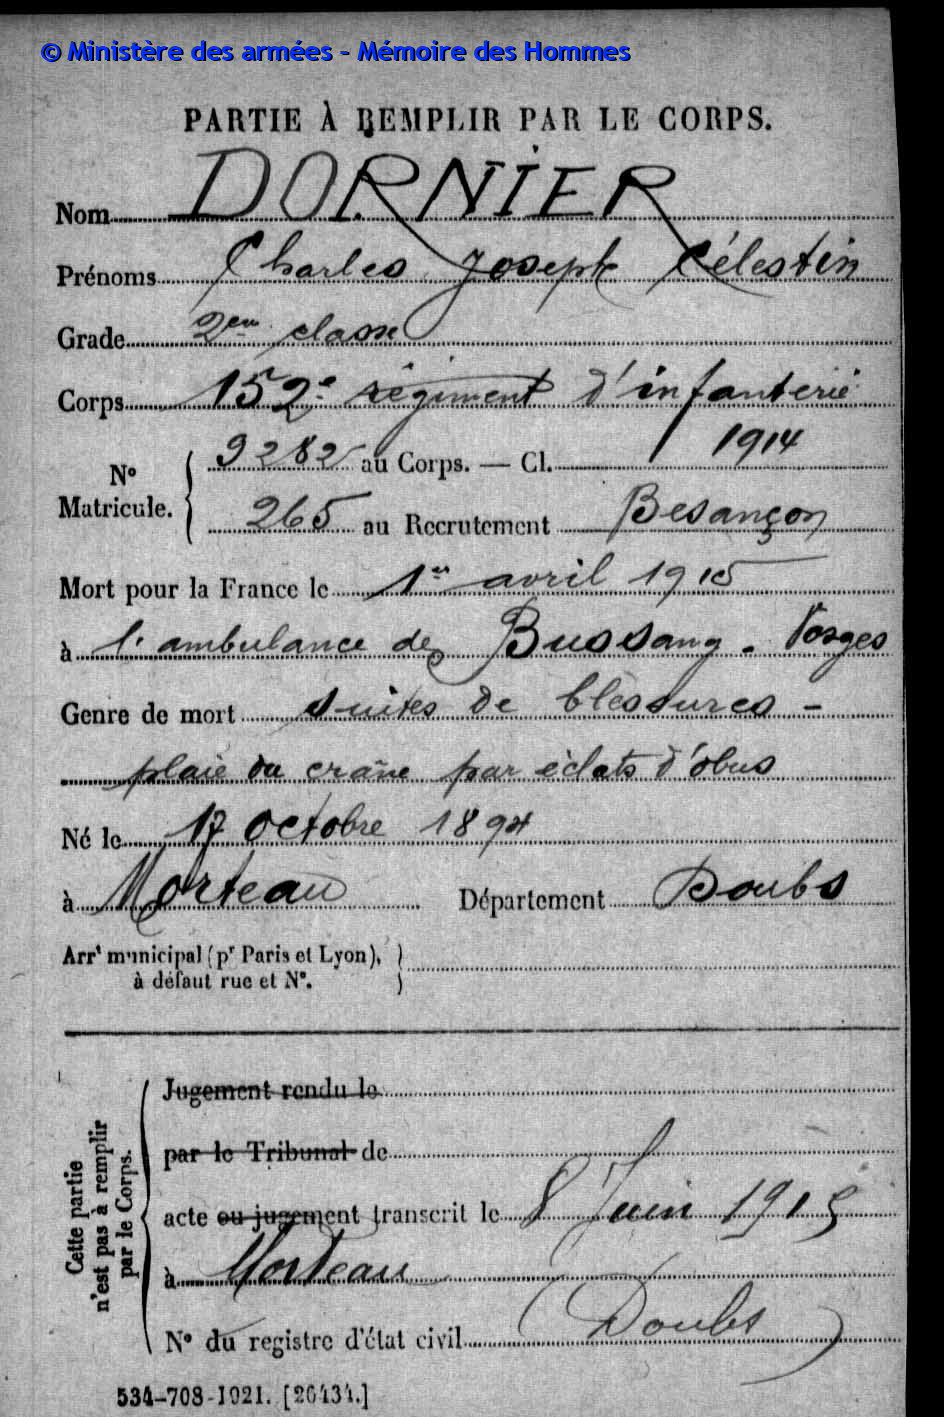 © Ministère des armées - Mémoire des Hommes
PARTIE À REMPLIR PAR LE CORPS.
Nom DORNIER
Prénoms Charles Joseph Célestin
Grade 2em classe
Corps 152e régiment d'infanterie
N° Matricule. { 9282 au Corps. — Cl. 1914
265 au Recrutement Besançon
Mort pour la France le 1er avril 1915
à l'ambulance de Bussang - Vosges
Genre de mort suites de blessures -
plaie du crâne par éclats d'obus
Né le 17 octobre 1894
à Morteau Département Doubs
Arrt municipal (pr Paris et Lyon), }
à défaut rue et N°.
Cette partie n'est pas à remplir par le Corps.
Jugement rendu le
par le Tribunal de
acte ou jugement transcrit le 8 Juin 1915
à Morteau
N° du registre d'état civil (Doubs)
534-708-1921. [26434.]